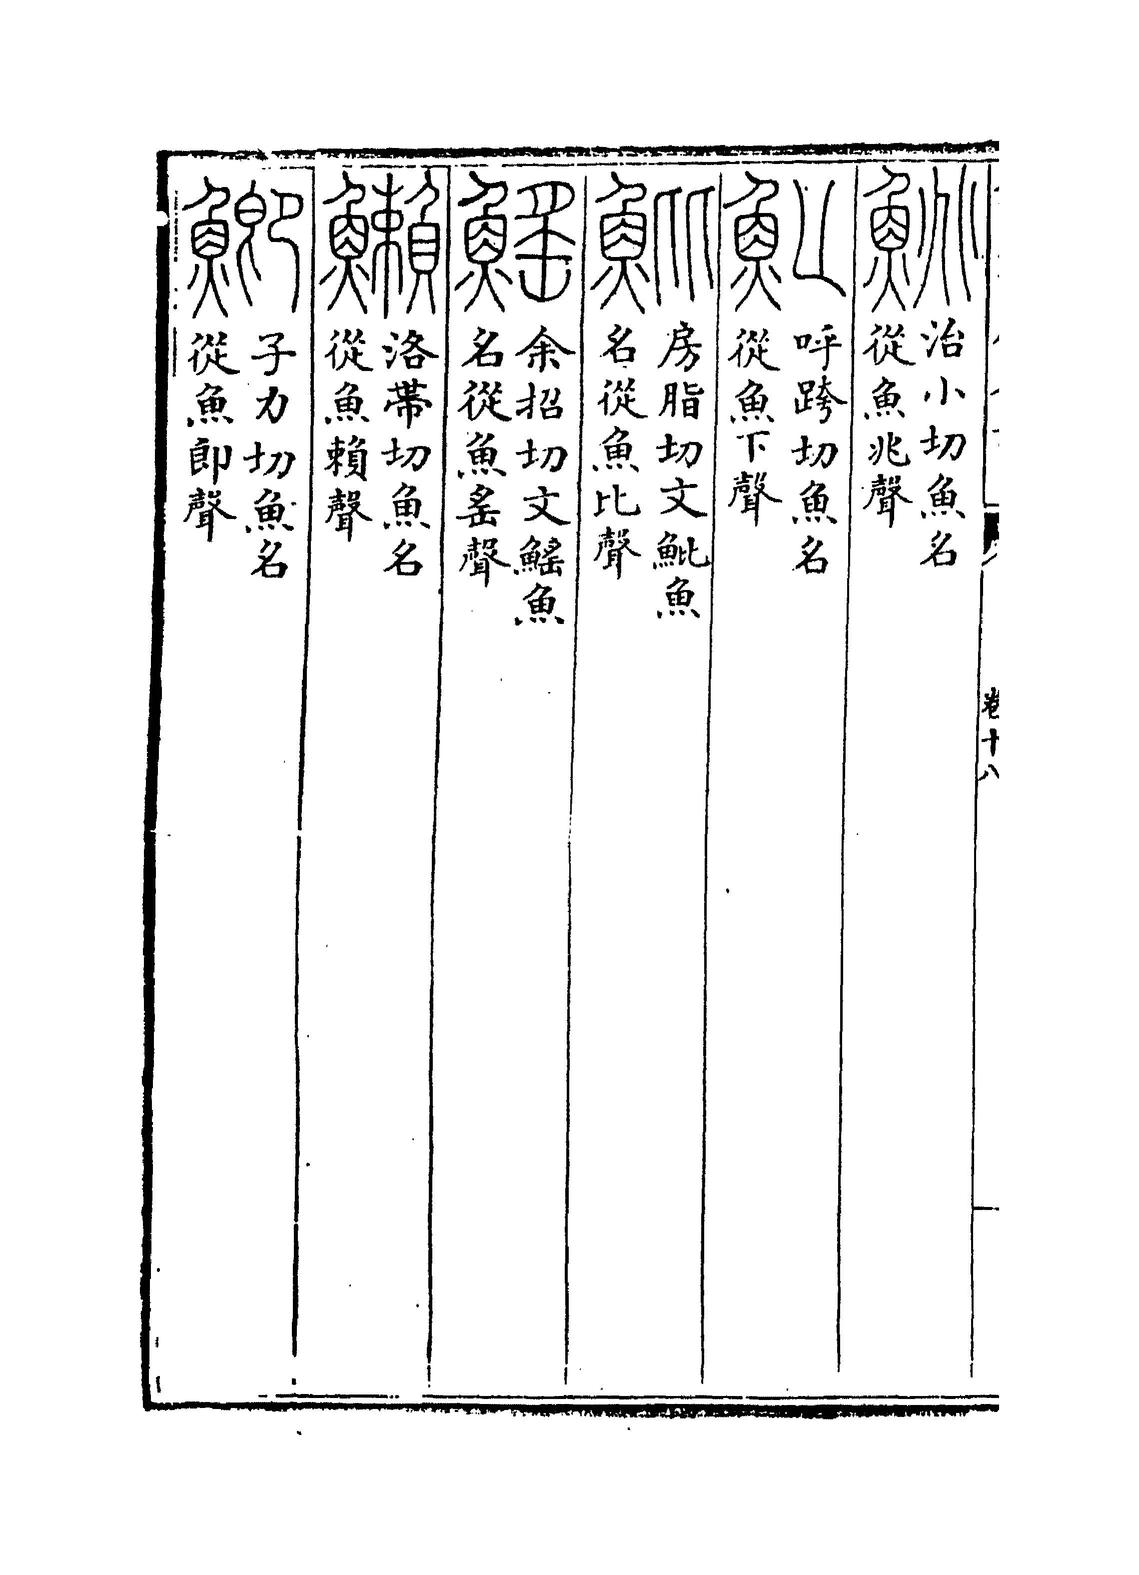 鮡
治小切魚名
從魚兆聲
魚下
呼跨切魚名
從魚下聲
魮
房脂切文魮魚
名從魚比聲
鰩
余招切文鰩魚
名從魚䍃聲
鱜
洛蔕切魚名
從魚賴聲
鯽
子力切魚名
從魚即聲
卷十八